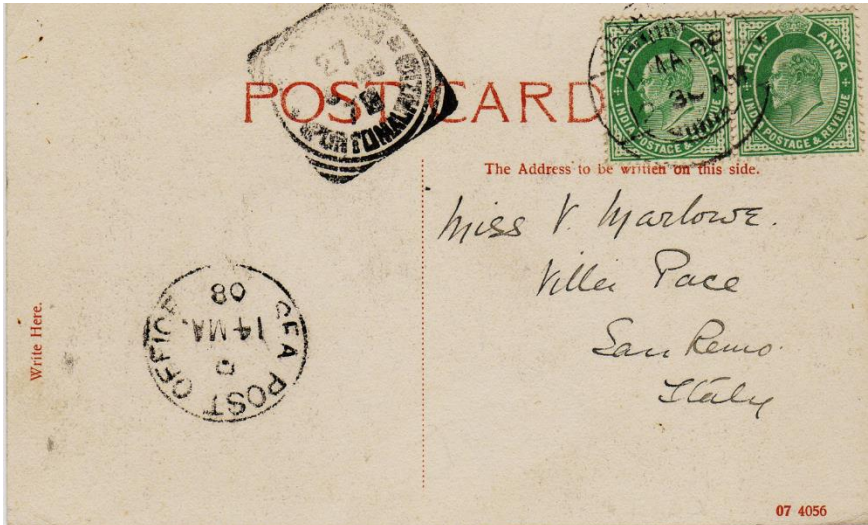 POST CARD
HALF ANNA
INDIA POSTAGE & REVENUE
HALF ANNA
INDIA POSTAGE & REVENUE
The Address to be written on this side.
Miss V. Marlowe.
Villa Pace
San Remo.
Italy
Write Here.
SEA POST OFFICE
14 MA.
08
07 4056